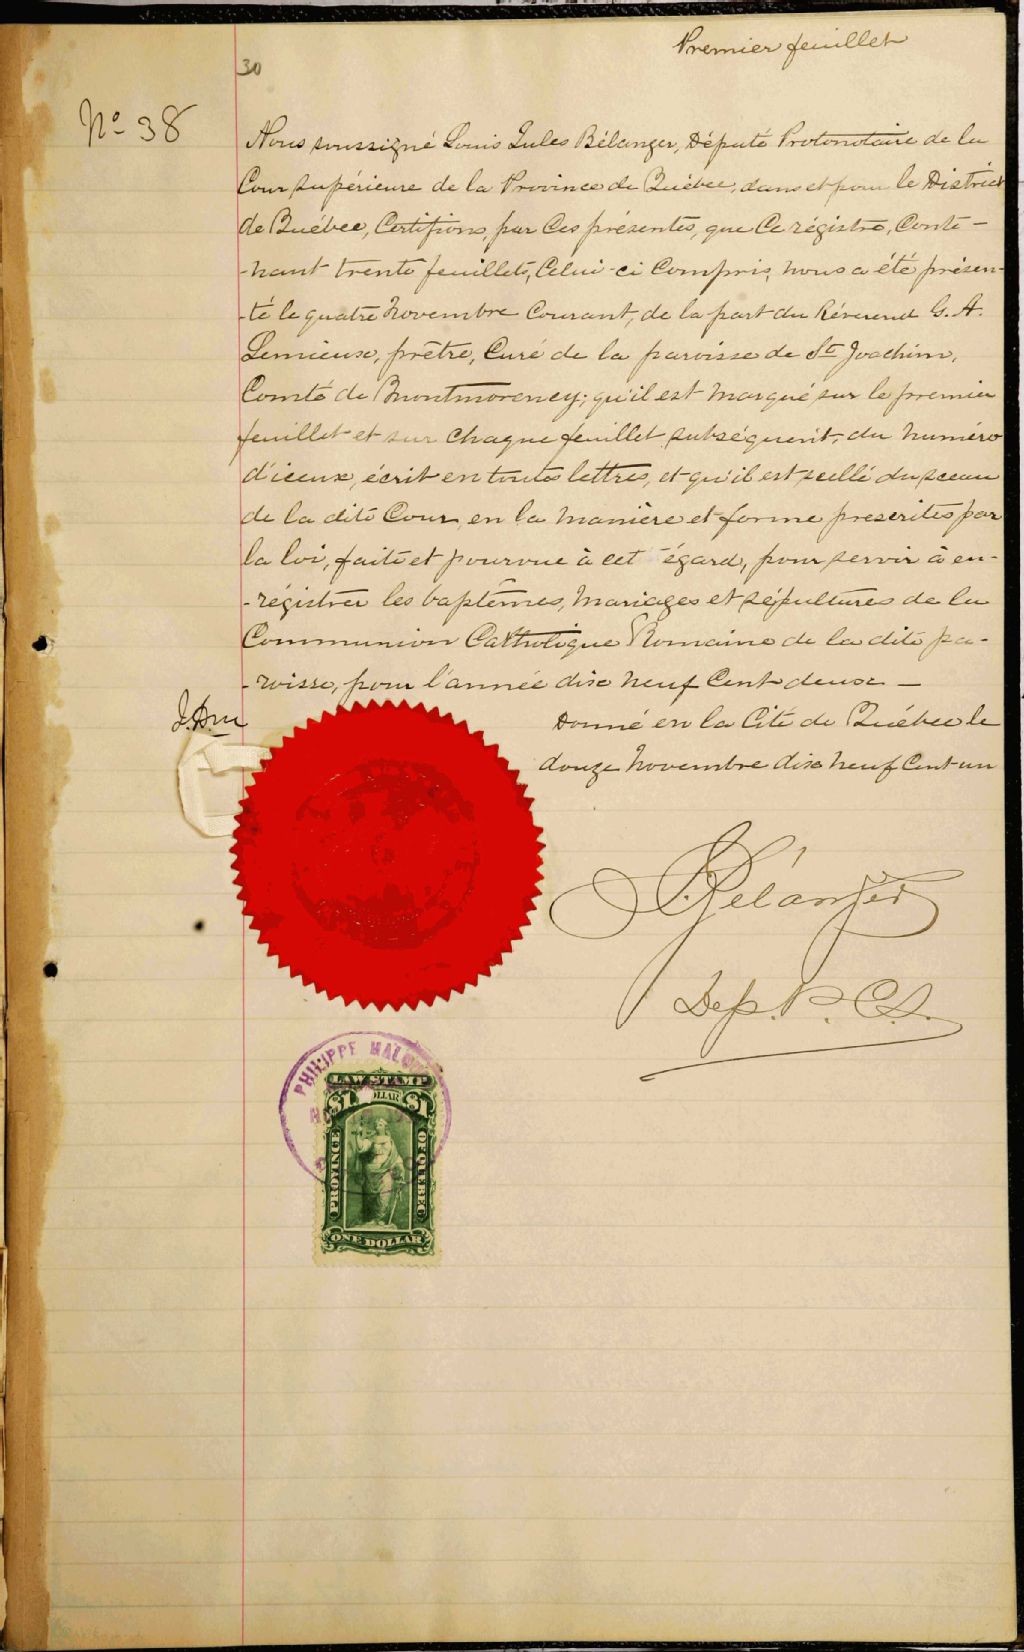 Premier feuillet
30
No 38
Nous soussigné Louis Jules Bélanger, Député Protonotaire de la
Cour Supérieure de la Province de Québec, dans et pour le District
de Québec, Certifions, par ces présentes, que ce régistre, Conte-
-nant trente feuillets, Celui-ci Compris, nous a été présen-
-té le quatre Novembre Courant, de la part du Révérend G. A.
Lemieux, prêtre, Curé de la paroisse de St Joachim,
Comté de Montmorency; qu'il est marqué sur le premier
feuillet et sur chaque feuillet subséquent, du numéro
d'iceux, écrit en toutes lettres, et qu'il est scellé du sceau
de la dite Cour, en la manière et forme prescrites par
la loi, faite et pourvue à cet égard, pour servir à en-
-régistrer les baptêmes, Mariages et sépultures de la
Communion Catholique Romaine de la dite pa-
-roisse, pour l'année dix neuf Cent deux —
Donné en la Cité de Québec le
douze Novembre dix neuf Cent un
Bélanger
Dep. P. C. S.
PHILIPPE
LAW STAMP
$1 DOLLAR $1
PROVINCE OF QUEBEC
ONE DOLLAR